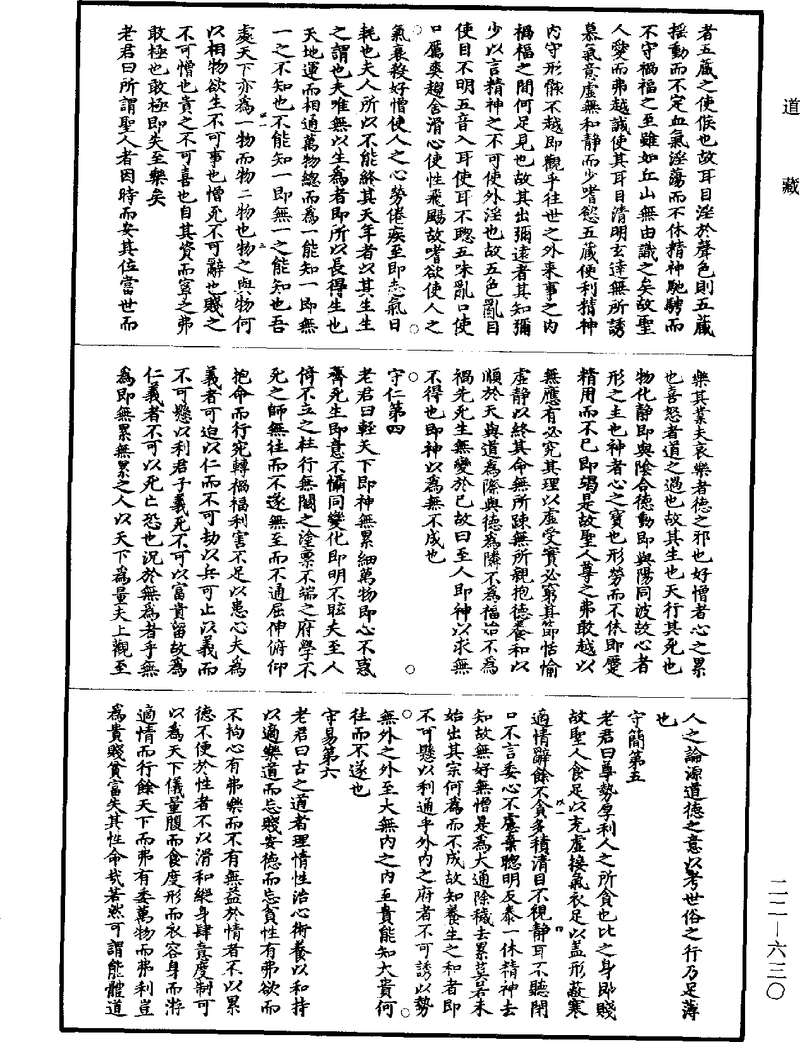 道藏
者五藏之使候也故耳目淫於聲色則五藏
搖動而不定血氣淫蕩而不休精神馳騁而
不守禍福之至雖如丘山無由識之矣故聖
人愛而弗越誠使其耳目清明玄達無所誘
慕氣意虛無和靜而少嗜慾五藏便利精神
內守形骸不越即觀乎往世之外來事之內
禍福之間何足見也故其出彌遠者其知彌
少以言精神之不可使外淫也故五色亂目
使目不明五音入耳使耳不聰五味亂口使
口厲爽趣舍滑心使性飛颺故嗜欲使人之
氣衰殺好憎使人之心勞倦疾至即志氣日
耗也夫人所以不能終其天年者以其生生
之謂也夫唯無以生為者即所以長得生也
天地運而相通萬物總而為一能知一即無
一之不知也不能知一即無一之能知也吾
處天下亦為一物而物亦物也物之與物何
以相物欲生不可事也憎死不可辭也賤之
不可憎也貴之不可喜也自其資而寧之弗
敢極也敢極即失至樂矣
老君曰所謂聖人者因時而安其位當世而
樂其業夫哀樂者德之邪也好憎者心之累
也喜怒者道之過也故其生也天行其死也
物化靜即與陰合德動即與陽同波故心者
形之主也神者心之寶也形勞而不休即蹷
精用而不已即竭是故聖人尊之弗敢越以
無應有必究其理以虛受實必窮其節恬愉
虛靜以終其命無所踈無所親抱德養和以
順於天與道為際與德為隣不為福始不為
禍先死生無變於已故曰至人即神以求無
不得也即神以為無不成也
守仁第四
老君曰輕天下即神無累細萬物即心不惑
齊死生即意不懾同變化即明不眩夫至人
倚不立之柱行無關之塗稟不端之府學不
死之師無往而不遂無至而不通屈伸俯仰
抱命而行宛轉禍福利害不足以患心夫為
義者可迫以仁而不可劫以兵可止以義而
不可懸以利君子義死不可以富貴留故為
仁義者不可以死亡恐也況於無為者乎無
為即無累無累之人以天下為量夫上觀至
人之論源道德之意以考世俗之行乃足薄
也
守簡第五
老君曰尊勢厚利人之所貪也比之身即賤
故聖人食足以充虛接氣衣足以蓋形蔽寒
適情辭餘不貪多積清目不視靜耳不聽閉
口不言委心不慮棄聰明反泰一休精神去
知故無好無憎是為大通除穢去累莫若未
始出其宗何為而不成故知養生之和者即
不可懸以利通乎外內之府者不可誘以勢
無外之外至大無內之內至貴能知大貴何
往而不遂也
守易第六
老君曰古之道者理情性治心術養以和持
以適樂道而忘賤安德而忘貧性有弗欲而
不拘心有弗樂而不有無益於情者不以累
德不便於性者不以滑和縱身肆意度制可
以為天下儀量腹而食度形而衣容身而游
適情而行餘天下而弗有委萬物而弗利豈
為貴賤貧富失其性命哉若然可謂能體道
二二—六三〇